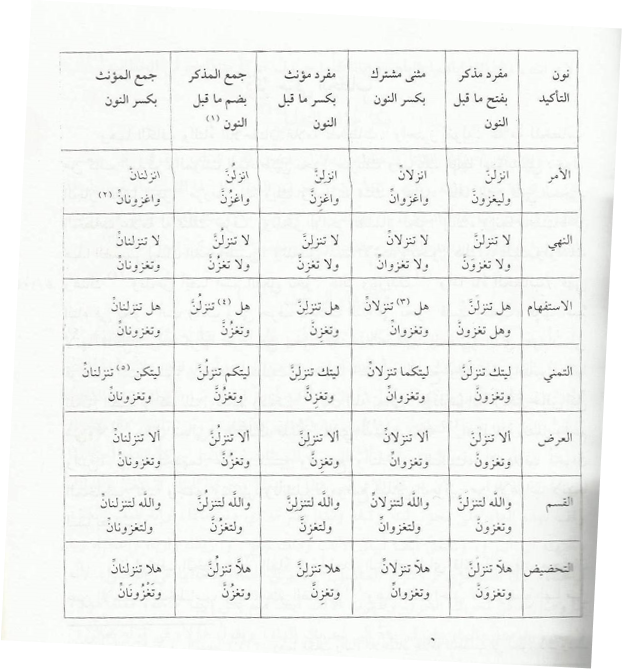 نون مفرد مذكر مثنى مشترك مفرد مؤنث جمع المذكر جمع المؤنث
التأكيد بفتح ما قبل بكسر النون بكسر ما قبل بضم ما قبل بكسر النون
النون النون النون (١)
الأمر انزلنَّ انزلانّ انزلِنَّ انزلُنَّ انزلنانّ
وليغزونَّ واغزوانّ واغزِنَّ واغزُنَّ واغزونانّ (٢)
النهي لا تنزلنَّ لا تنزلانّ لا تنزلِنَّ لا تنزلُنَّ لا تنزلنانّ
ولا تغزوَنَّ ولا تغزوانّ ولا تغزِنَّ ولا تغزُنَّ وتغزونانّ
الاستفهام هل تنزلَنَّ هل (٣) تنزلانّ هل تنزلِنَّ هل (٤) تنزلُنَّ هل تنزلنانّ
وهل تغزونَّ وتغزوانّ وتغزِنَّ وتغزُنَّ وتغزونانّ
التمني ليتك تنزلَنَّ ليتكما تنزلانّ ليتك تنزلِنَّ ليتكم تنزلُنَّ ليتكن (٥) تنزلنانّ
وتغزونَّ وتغزوانّ وتغزِنَّ وتغزُنَّ وتغزونانّ
العرض ألا تنزلنَّ ألا تنزلانّ ألا تنزلِنَّ ألا تنزلُنَّ ألا تنزلنانّ
وتغزونَّ وتغزوانّ وتغزِنَّ وتغزُنَّ وتغزونانّ
القسم واللَّه لتنزلنَّ واللَّه لتنزلانّ واللَّه لتنزلِنَّ واللَّه لتنزلُنَّ واللَّه لتنزلنانّ
وتغزونَّ ولتغزوانّ ولتغزِنَّ ولتغزُنَّ ولتغزونانّ
التحضيض هلاّ تنزلنَّ هلاّ تنزلانّ هلا تنزلِنَّ هلاَّ تنزلُنَّ هلا تنزلنانّ
وتغزوَنَّ وتغزوانّ وتغزِنَّ وتغزُنَّ وتَغْزُونَانّ